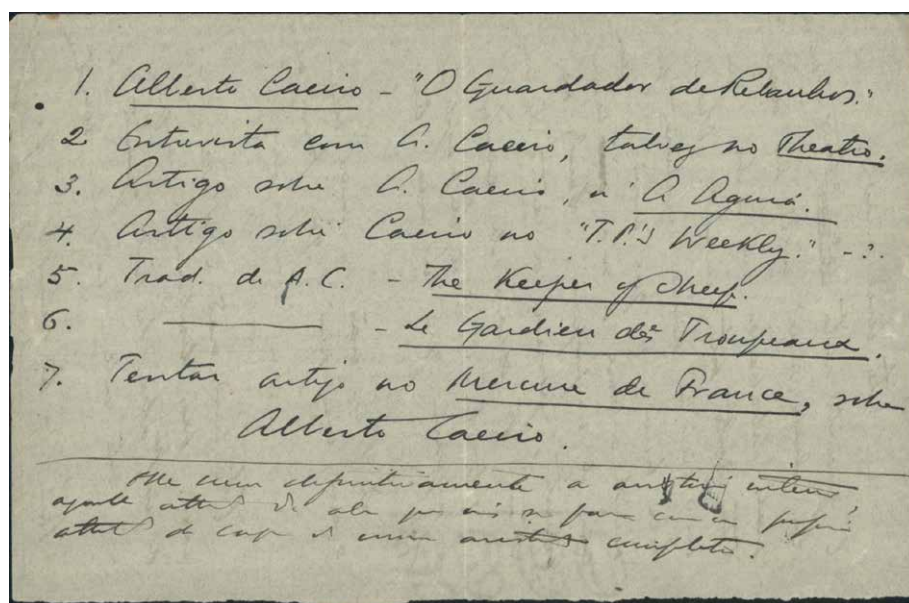 1. Alberto Caeiro - "O Guardador de Rebanhos."
2. Entrevista com A. Caeiro, talvez no Theatro.
3. Artigo sobre A. Caeiro, n' A Aguia.
4. Artigo sobre Caeiro no "T.P.'s Weekly." - ?
5. Trad. de A.C. - The Keeper of Sheep.
6. ——— - Le Gardien des Troupeaux.
7. Tentar artigo no Mercure de France, sobre
Alberto Caeiro.
definitivamente a
de alma que
de corpo completo.